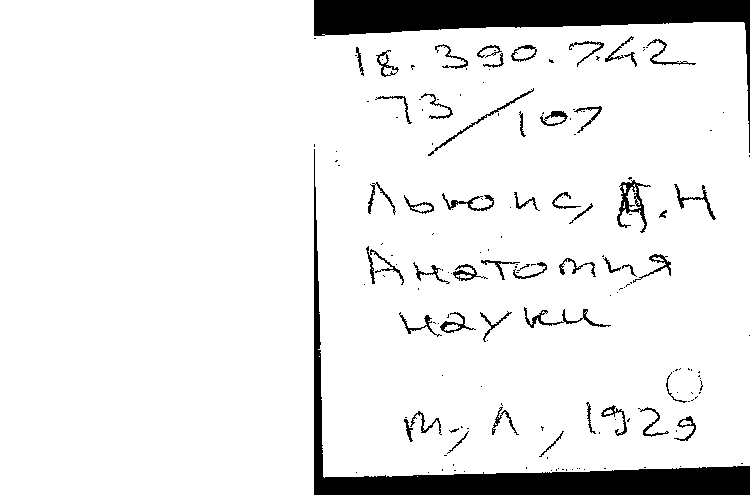 18.390.742
73/107
Льюис, Д.Н
Анатомия
науки
М., Л., 1929